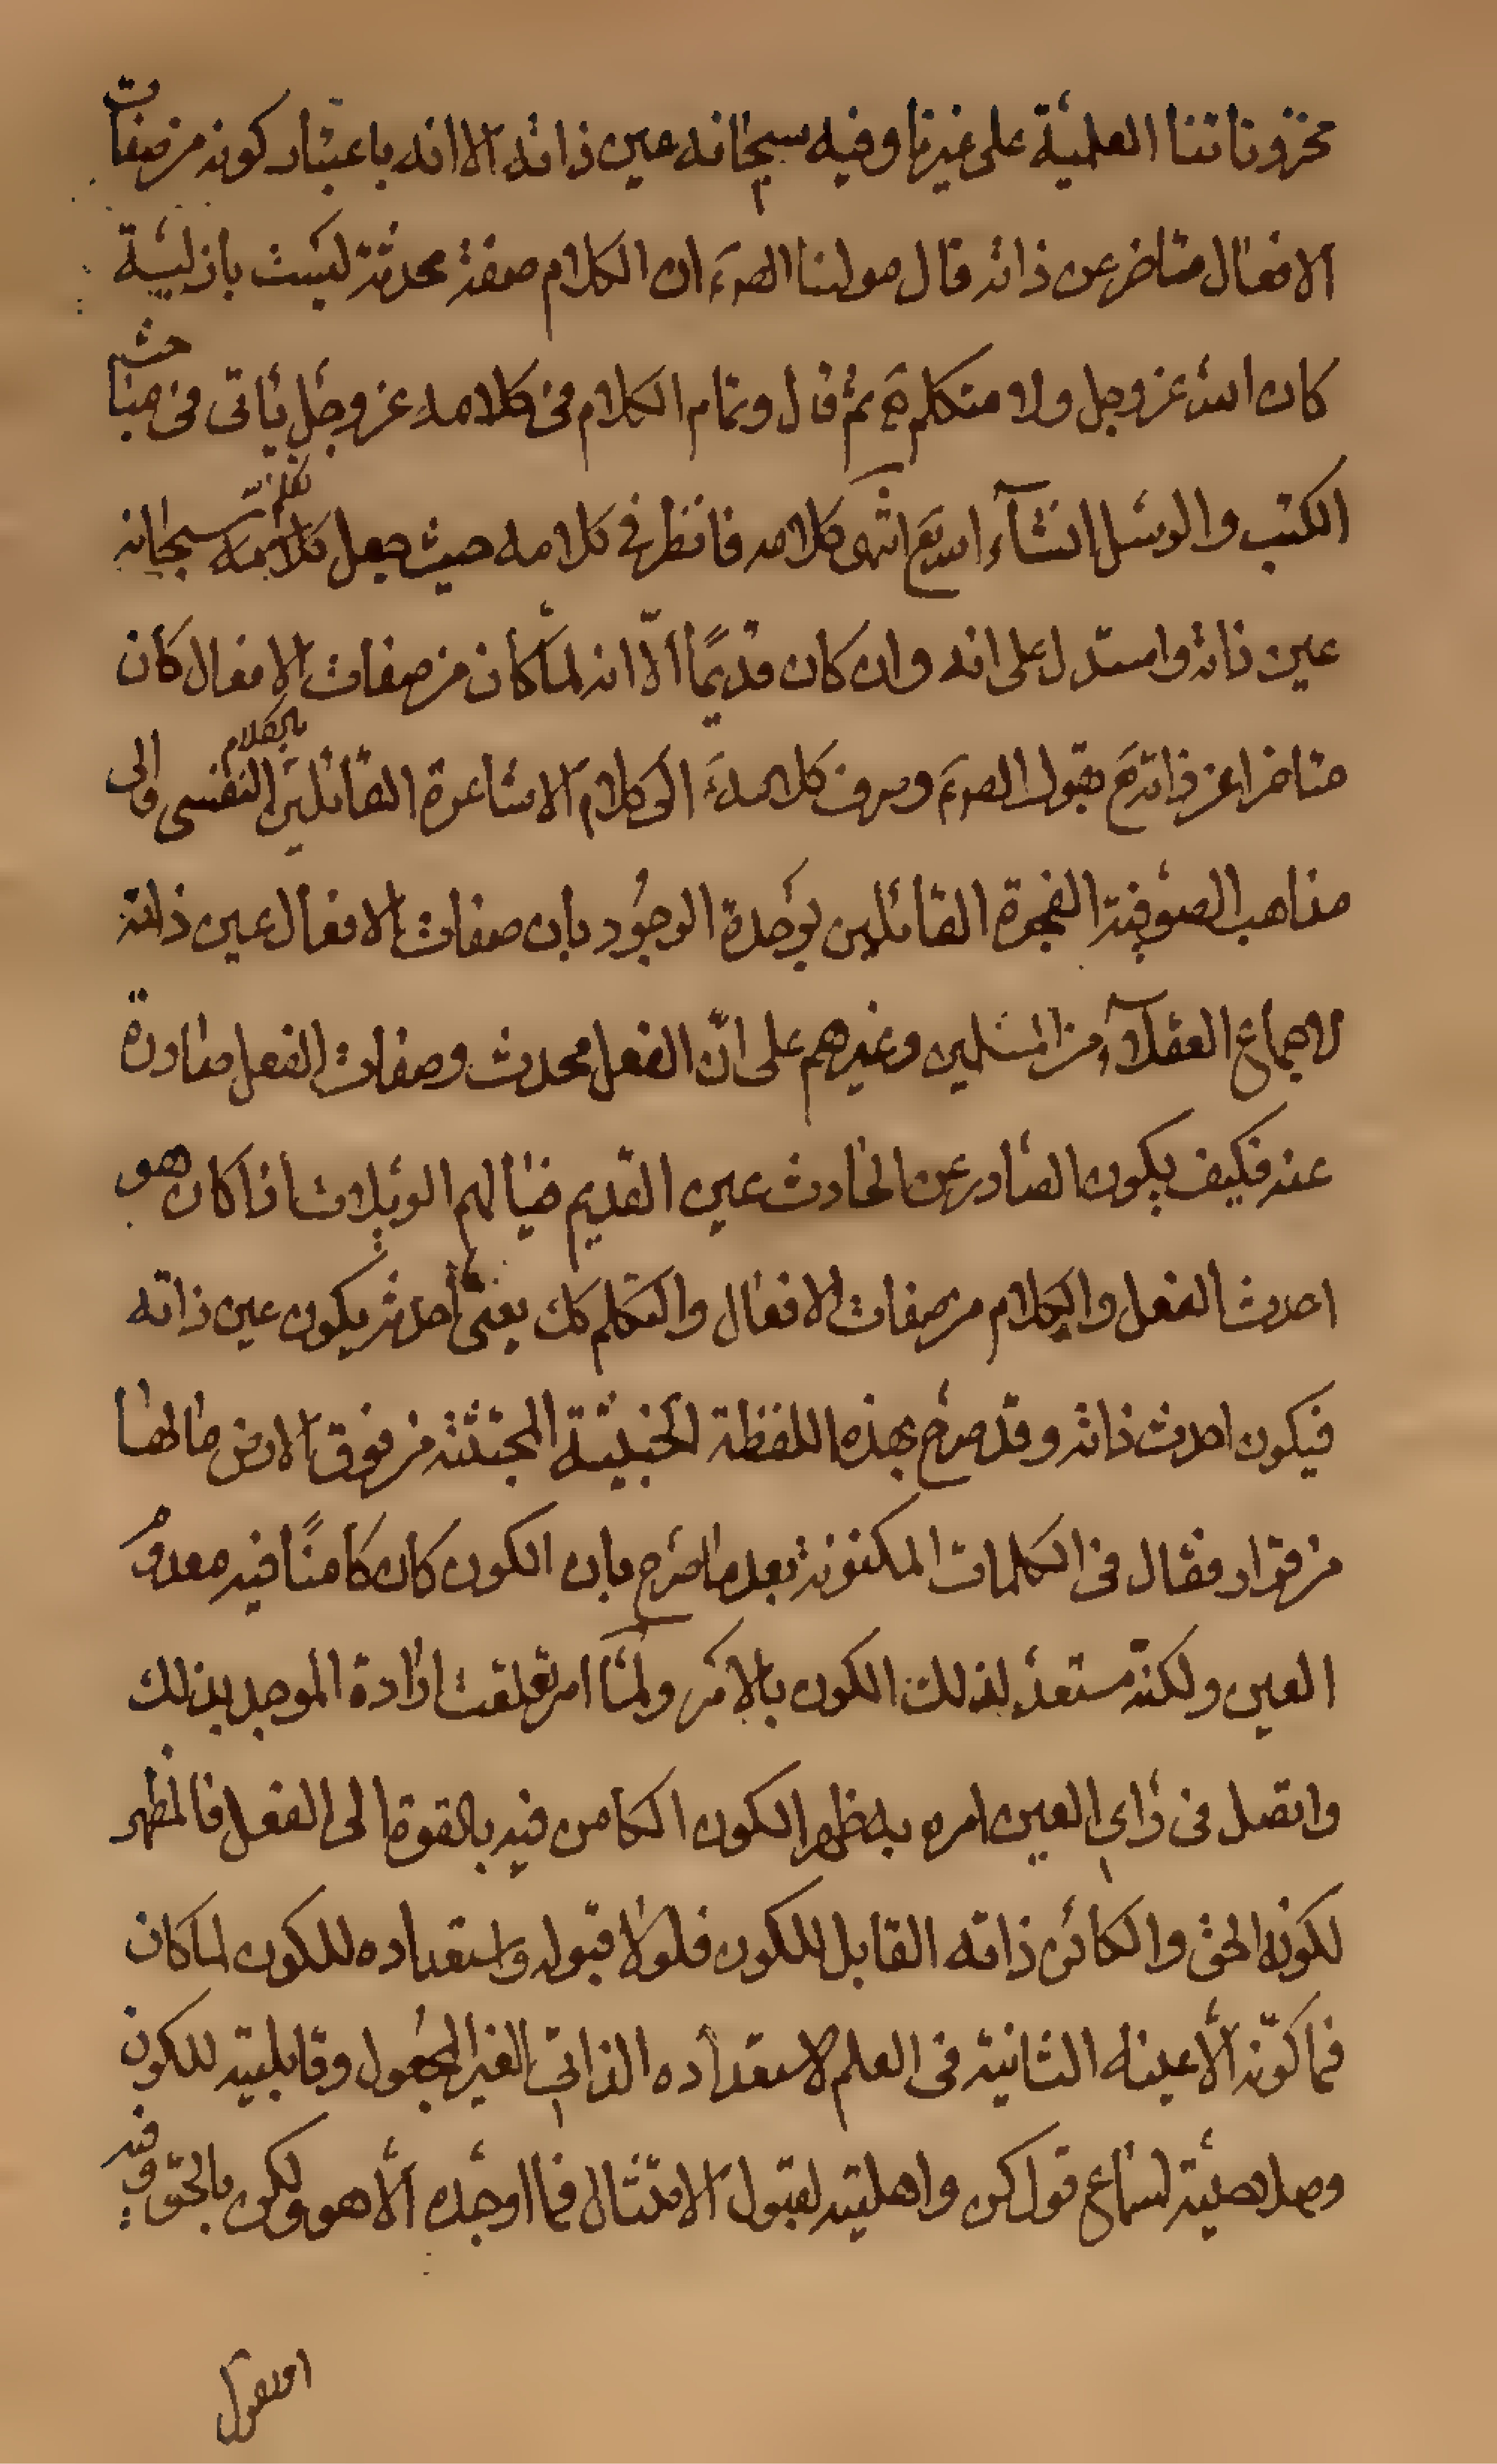 مخزوناتنا العلمية على غيرنا وفيه سبحانه عين ذاته الا انه باعتبار كونه من صفات
الافعال متاخر عن ذاته قال مولينا الصم ان الكلام صفة محدثة ليست بازلية
كان الله عز وجل ولا متكلم ثم قال وتمام الكلام في كلامه عز وجل ياتي في مباحث
الكتب والرسل انشآء الله تع انتهى كلامه فانظر في كلامه حيث جعل تكلمه سبحانه
عين ذاته واستدل على انه وان كان قديمًا الّا انه لما كان من صفات الافعال كان
متاخرا عن ذاته بقول الصم وصرف كلامه الى كلام الاشاعرة القائلين بالكلام النفسى والى
مذاهب الصوفية الفجرة القائلين بوحدة الوجود بان صفات الافعال عين ذاته
لاجماع العقلآء من المسلمين وغيرهم على انّ الفعل محدث وصفات الفعل صادرة
عنه فكيف يكون الصادر عن الحادث عين القديم فيا لهم الويلات اذا كان هو
احدث الفعل والكلام من صفات الافعال والتكلم كك يعنى احدثه يكون عين ذاته
فيكون احدث ذاته وقد صرح بهذه اللفظة الخبيثة المجتثة من فوق الارض ما لها
من قرار فقال في الكلمات المكنونة بعد ما صرح بان الكون كان كامنًا فيه معدوم
العين ولكنه مستعد لذلك الكون بالامر ولما امر تعلقت ارادة الموجد بذلك
واتصل في راي العين امره به ظهر الكون الكامن فيه بالقوة الى الفعل فالمظهر
لكونه الحق والكائن ذاته القابل للكون فلولا قبوله واستعداده للكون لما كان
فما كوّنه الّا عينه الثابتة في العلم لاستعداده الذاتي الغير المجعول وقابليته للكون
وصلاحيته لسماع قول كن واهليته لقبول الامتثال فما اوجده الّا هو ولكن بالحق وفيه
اقول